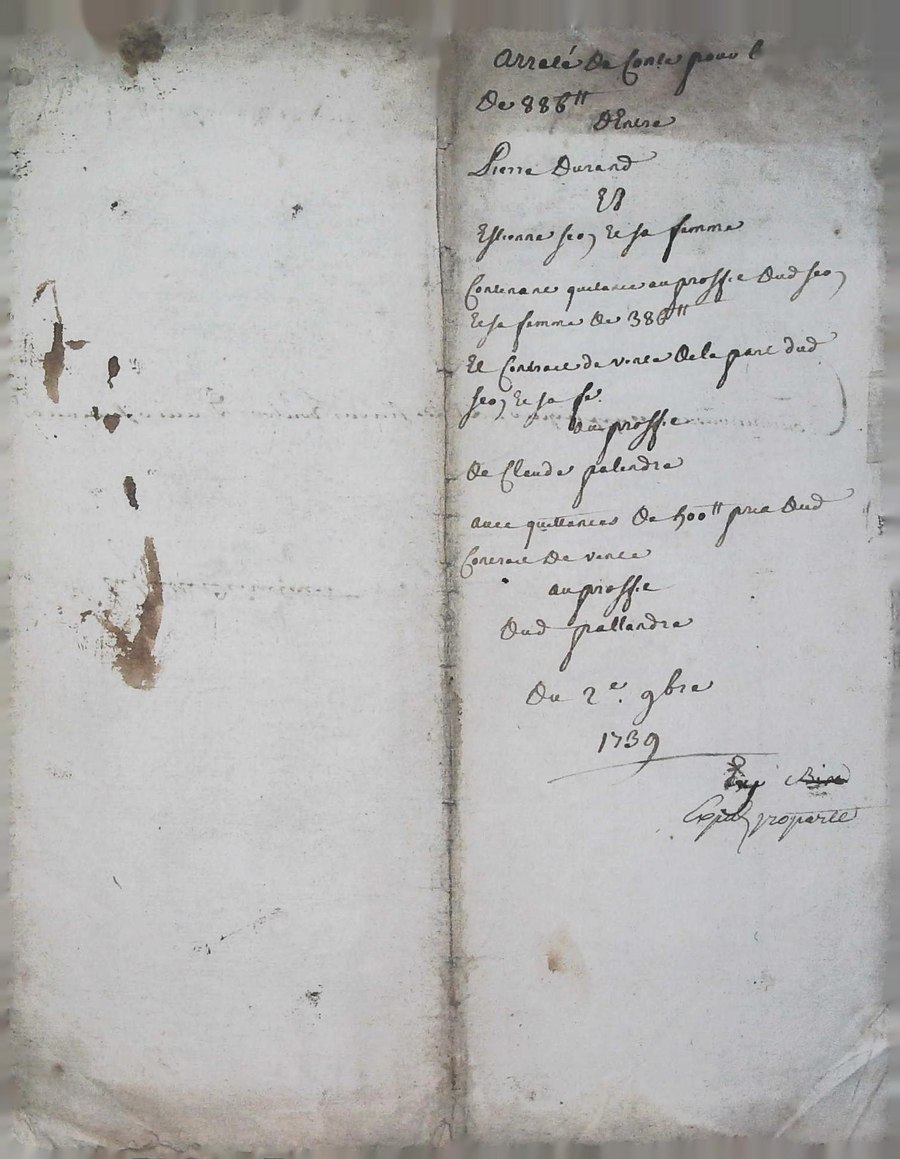 Arresté de Conte pour l
De 886tt
D'Entre
Pierre Durand
Et
Estienne seoz et sa femme
Contenant quitance au proffie Dud seoz
et sa femme De 386tt
Et Contract de vente De la part dud
seoz et sa fe.
Au proffie
De Claude palendre
avec quittances De 500tt prix Dud
Contract De vente
au proffie
Dud pallandre
Du 2e. 9bre
1739
Exp